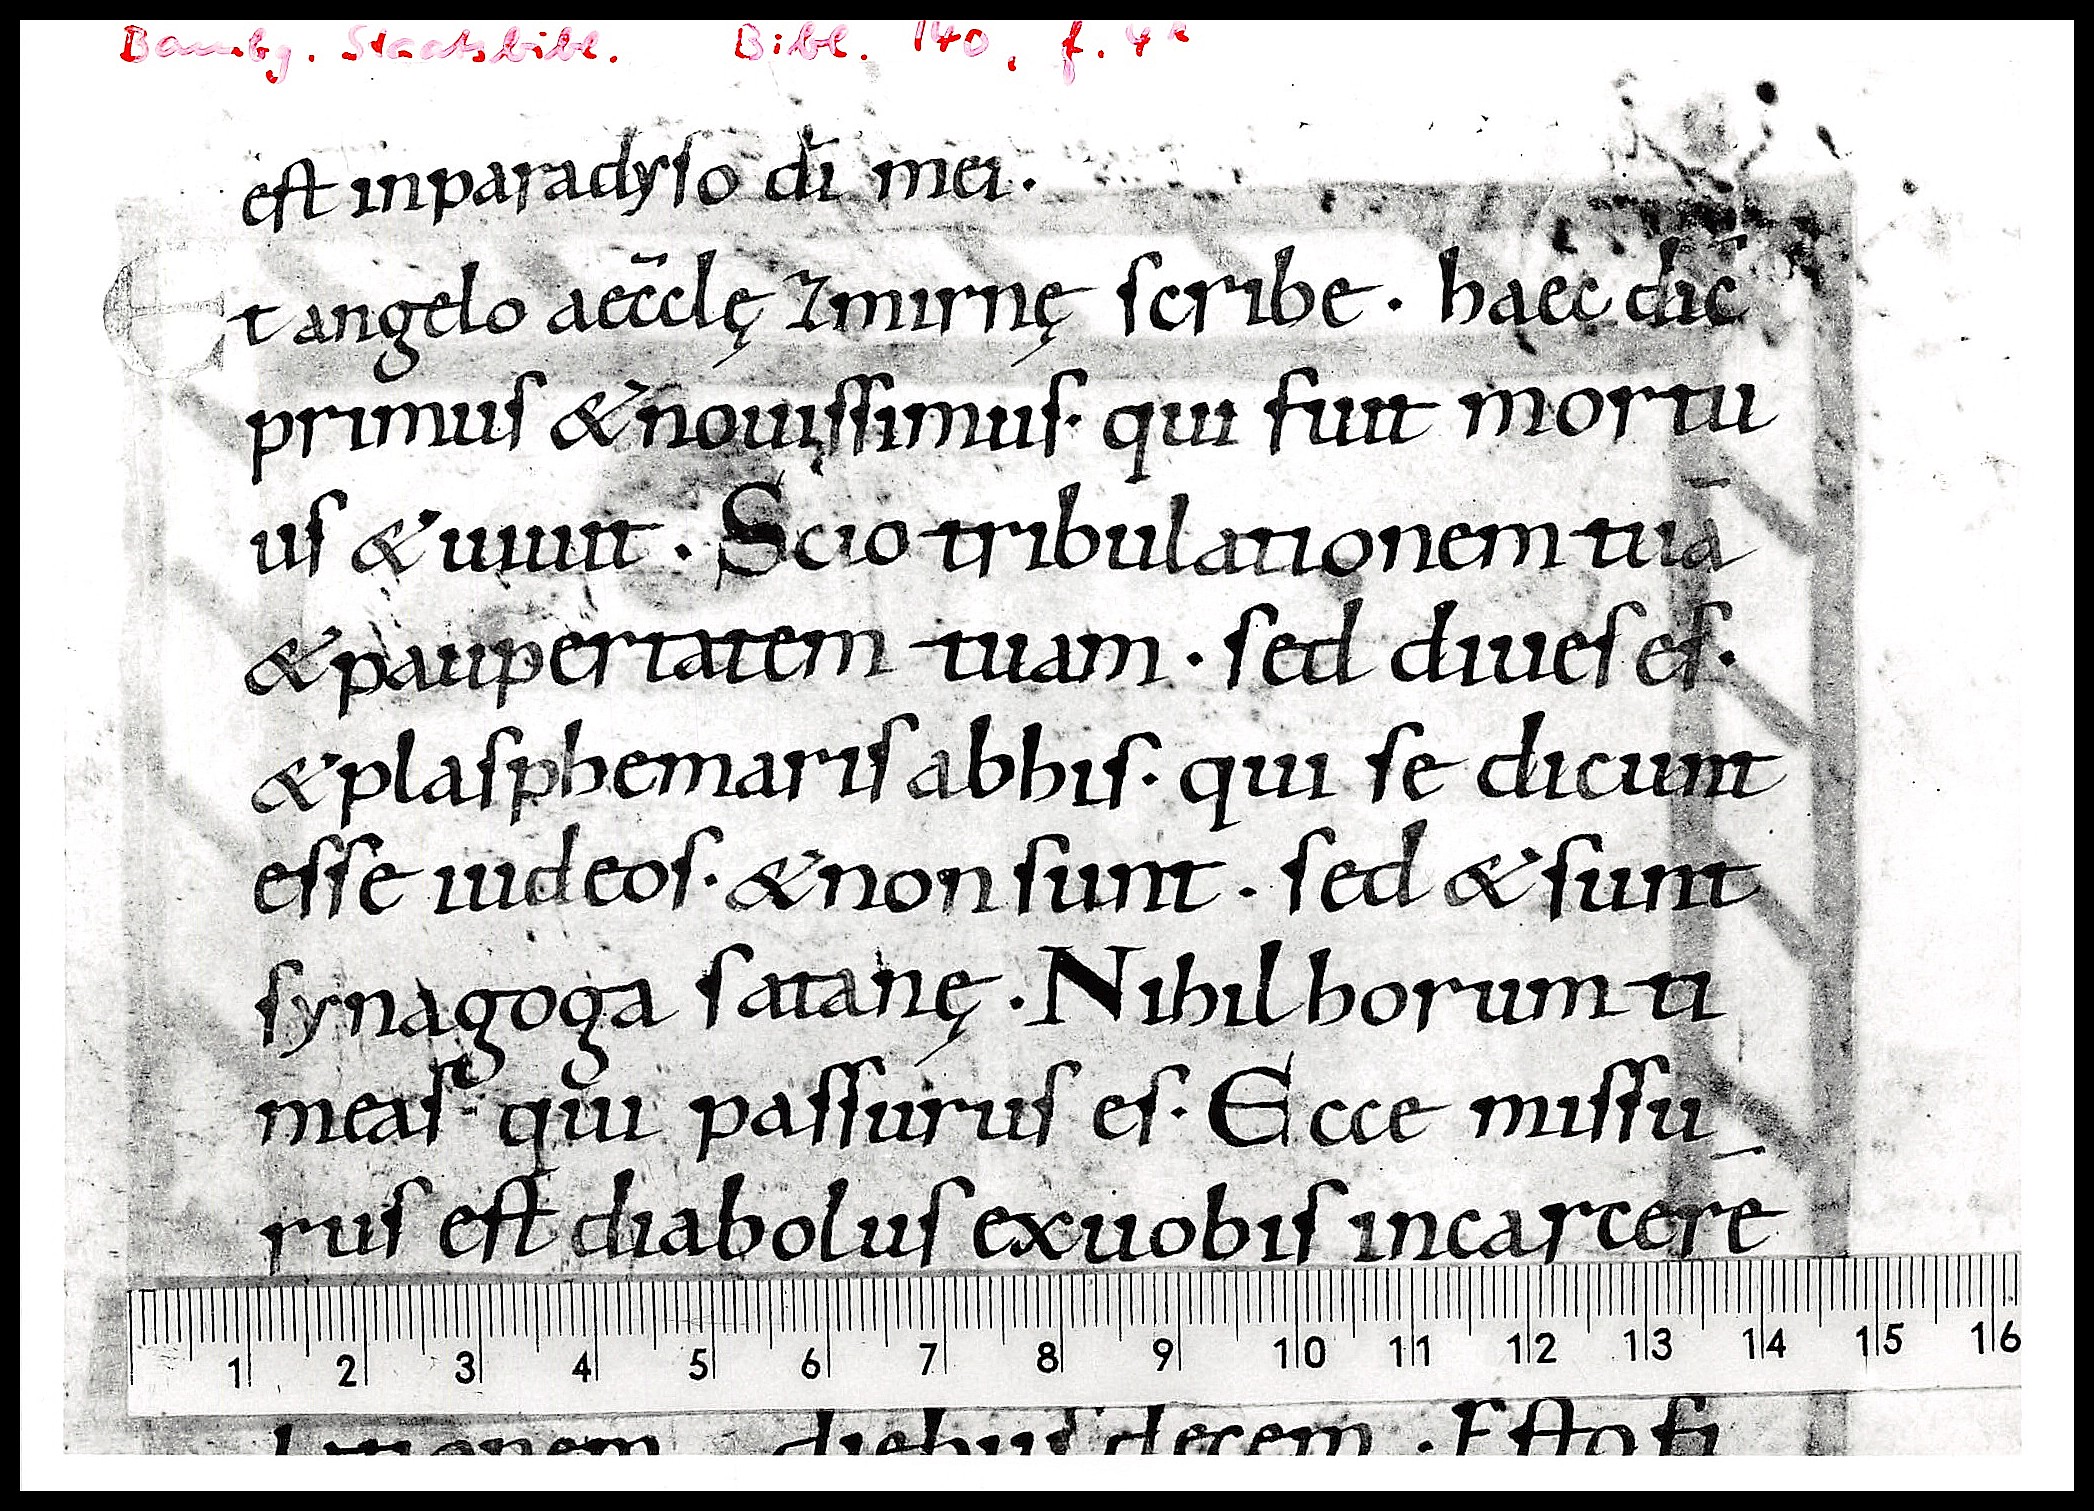 Bambg. Staatsbibl. Bibl. 140, f. 4r
est inparadyso dī mei.
Et angelo aec̄clę Zmirnę scribe · haec dic̄
primus & nouissimus · qui fuit mortu
us & uiuit · Scio tribulationem tuā
& paupertatem tuam · sed diues es ·
& plasphemaris abhis · qui se dicunt
esse iudeos · & non sunt · sed & sunt
synagoga satanę · Nihil horum ti
meas qui passurus es · Ecce missu
rus est diabolus exuobis incarcerē
1 2 3 4 5 6 7 8 9 10 11 12 13 14 15 16
diebus decem · Esto fi